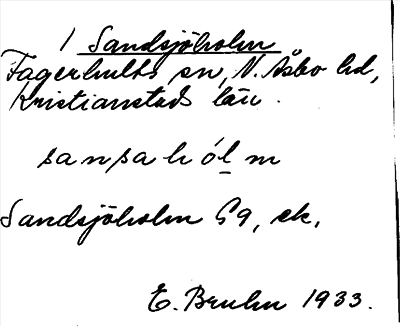 1 Sandsjöholm
Fagerhults sn, N. Åsbo hd,
Kristianstads län.
sansahólm
Sandsjöholm Gg, ek.
E. Bruhn 1933.